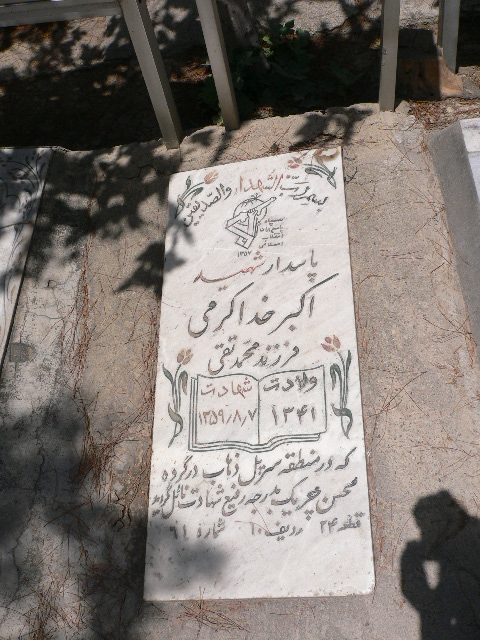 بسم رب الشهداء والصدیقین
سپاه
پاسداران
انقلاب
اسلامی
۱۳۵۷
پاسدار شهید
اکبر خداکرمی
فرزند محمد تقی
ولادت شهادت
۱۳۴۱ ۱۳۵۹/۸/۷
که در منطقه سرپل ذهاب در گروه
محسن چریک بدرجه رفیع شهادت نائل گردید
قطعه ۲۴ ردیف ۶۰ شماره ۹۱